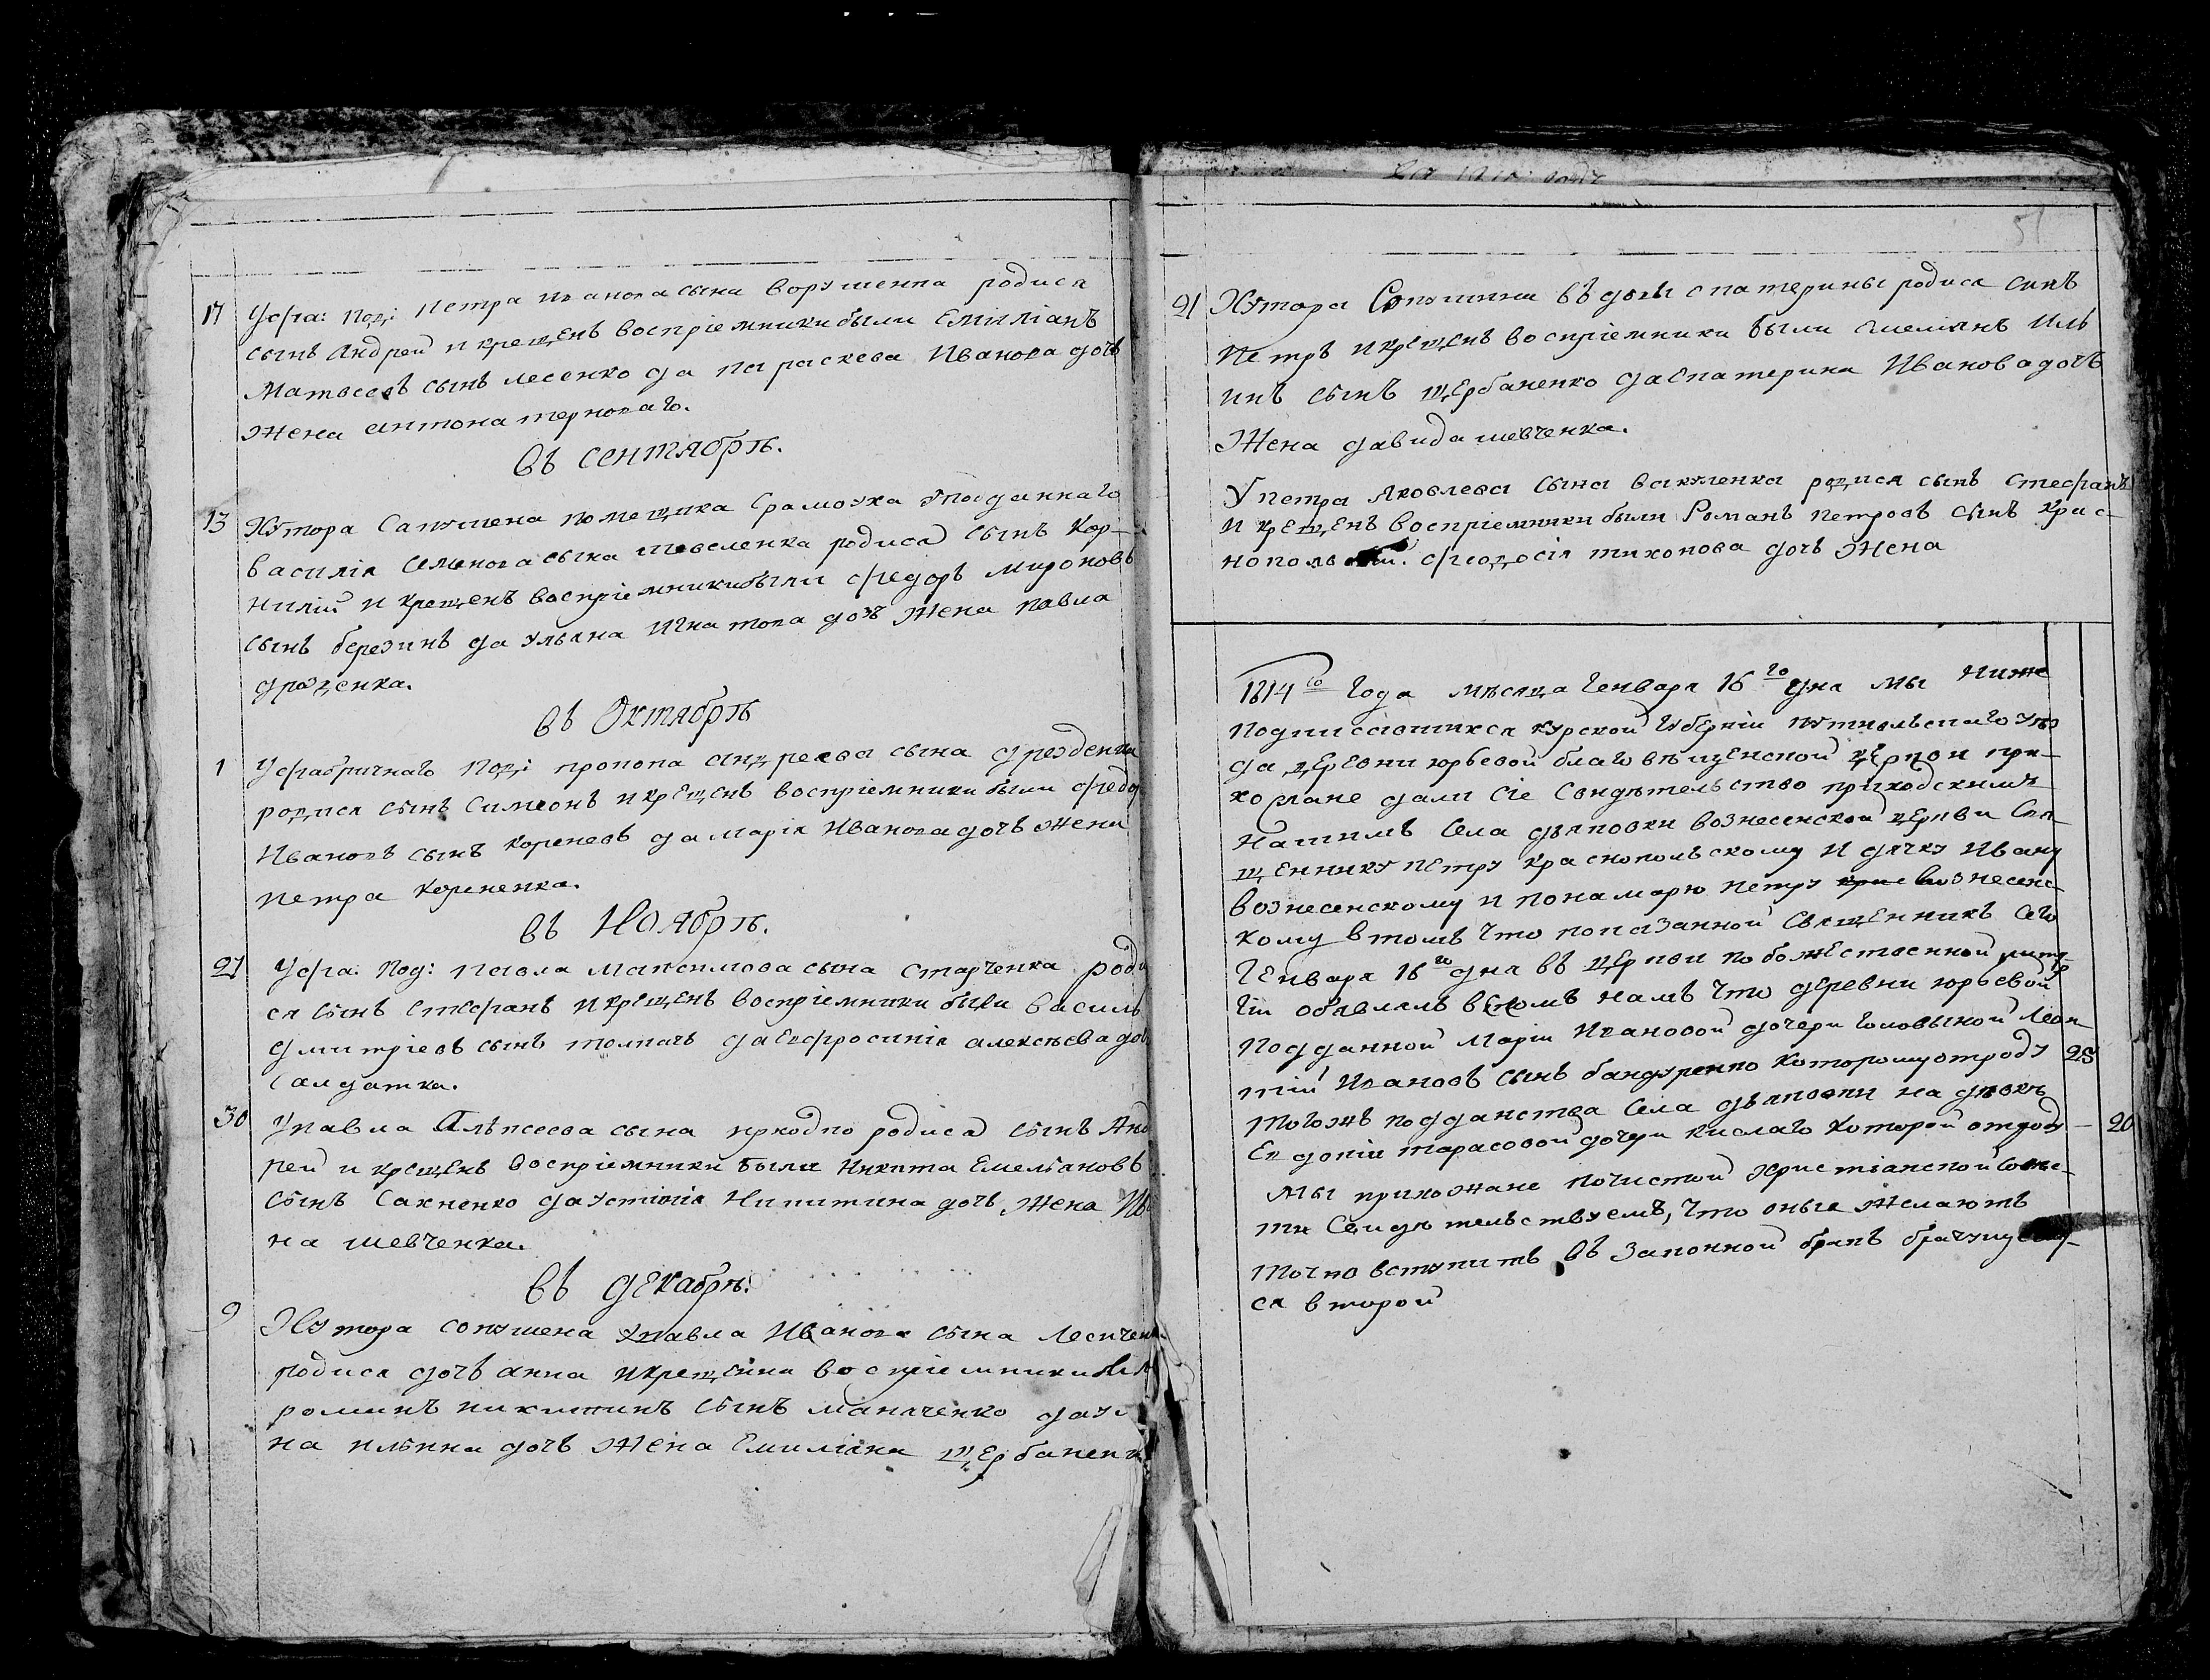 17 У фа: под: Петра Иванова сына Ворушенка родися
сынъ Андрей и крещенъ воспріемники были Емиліанъ
Матвеевъ сынъ Лесенко да Параскева Иванова дочь
жена Антона Терноваго.
въ сентябрѣ.
13 Хутора Сапушена помещика у подданнаго
Василія Семенова сына родися сынъ Кор-
нилій и крещенъ воспріемники были Федоръ Мироновъ
сынъ Березинъ да Ульяна Игнатова дочь жена Павла
въ Октябрѣ
1 У фабричнаго под: Прокопа Андреева сына
родися сынъ Симеонъ и крещенъ воспріемники были Федо
Ивановъ сынъ Кореневъ да Марія Иванова дочь жена
Петра Корененка.
въ Ноябрѣ.
27 У фа: под: Павла Максимова сына Старченка роди
ся сынъ Стефанъ и крещенъ воспріемники были Василь
Дмитріевъ сынъ Толмачъ да Евфросинія Алексѣева доч
салдатка.
30 У Павла Алѣксеева сына родися сынъ Анд
рей и крещенъ воспріемники были Никита Емельяновъ
сынъ Сахненко да Устинія Никитина дочь жена Ив
на Шевченка.
въ декабрѣ.
9 Хутора Сопушена у Павла Иванова сына Лесичен
родися дочь Анна и крещенна воспріемники были
Романъ Никитинъ сынъ Маначенко да Ул
на Ильина дочь жена Емиліана Щербаненк
51
21 Хутора Сопушина вдовы Екатерины родися синъ
Петръ и крещенъ воспріемники были Емелянъ Иль
инъ сынъ Щербаненко да Екатерина Иванова дочь
жена Давида Шевченка.
У Петра Яковлева сына Вакуленка родися сынъ Стефанъ
и крещенъ воспріемники были Романъ Петровъ сынъ Крас-
нопольский. Феодосія Тихонова дочь жена
1814го года мѣсяца Генваря 16го дня мы ниже
подписавшихся Курской Губерніи Путивльскаго уѣ
да деревни Юрьевой Благовѣщенской церкви при-
хожане дали сіе свидѣтельство приходскимъ
нашимъ села Дьяковки Вознесенской церкви свя-
щеннику Петру Краснопольскому и дячку Ивану
Вознесенскому и понамарю Петру Вознесенс-
кому в томъ что показанной священникъ сего
Генваря 16го дня въ церкви по божественной литур
гіи обявлялъ всѣмъ намъ что деревни Юрьевой
подданной Маріи Ивановой дочери Головыной Леон-
тій Ивановъ сынъ Бандуренко которому отроду 25
тогожъ подданства села Дьяковки на дѣвкѣ
Евдокіи Тарасовой дочери Кислаго которой отрод — 20
мы прихожане по чистой христіанской совѣс-
ти свидѣтельствуемъ, что оные желаютъ
точно вступить въ законной бракъ
ся второй